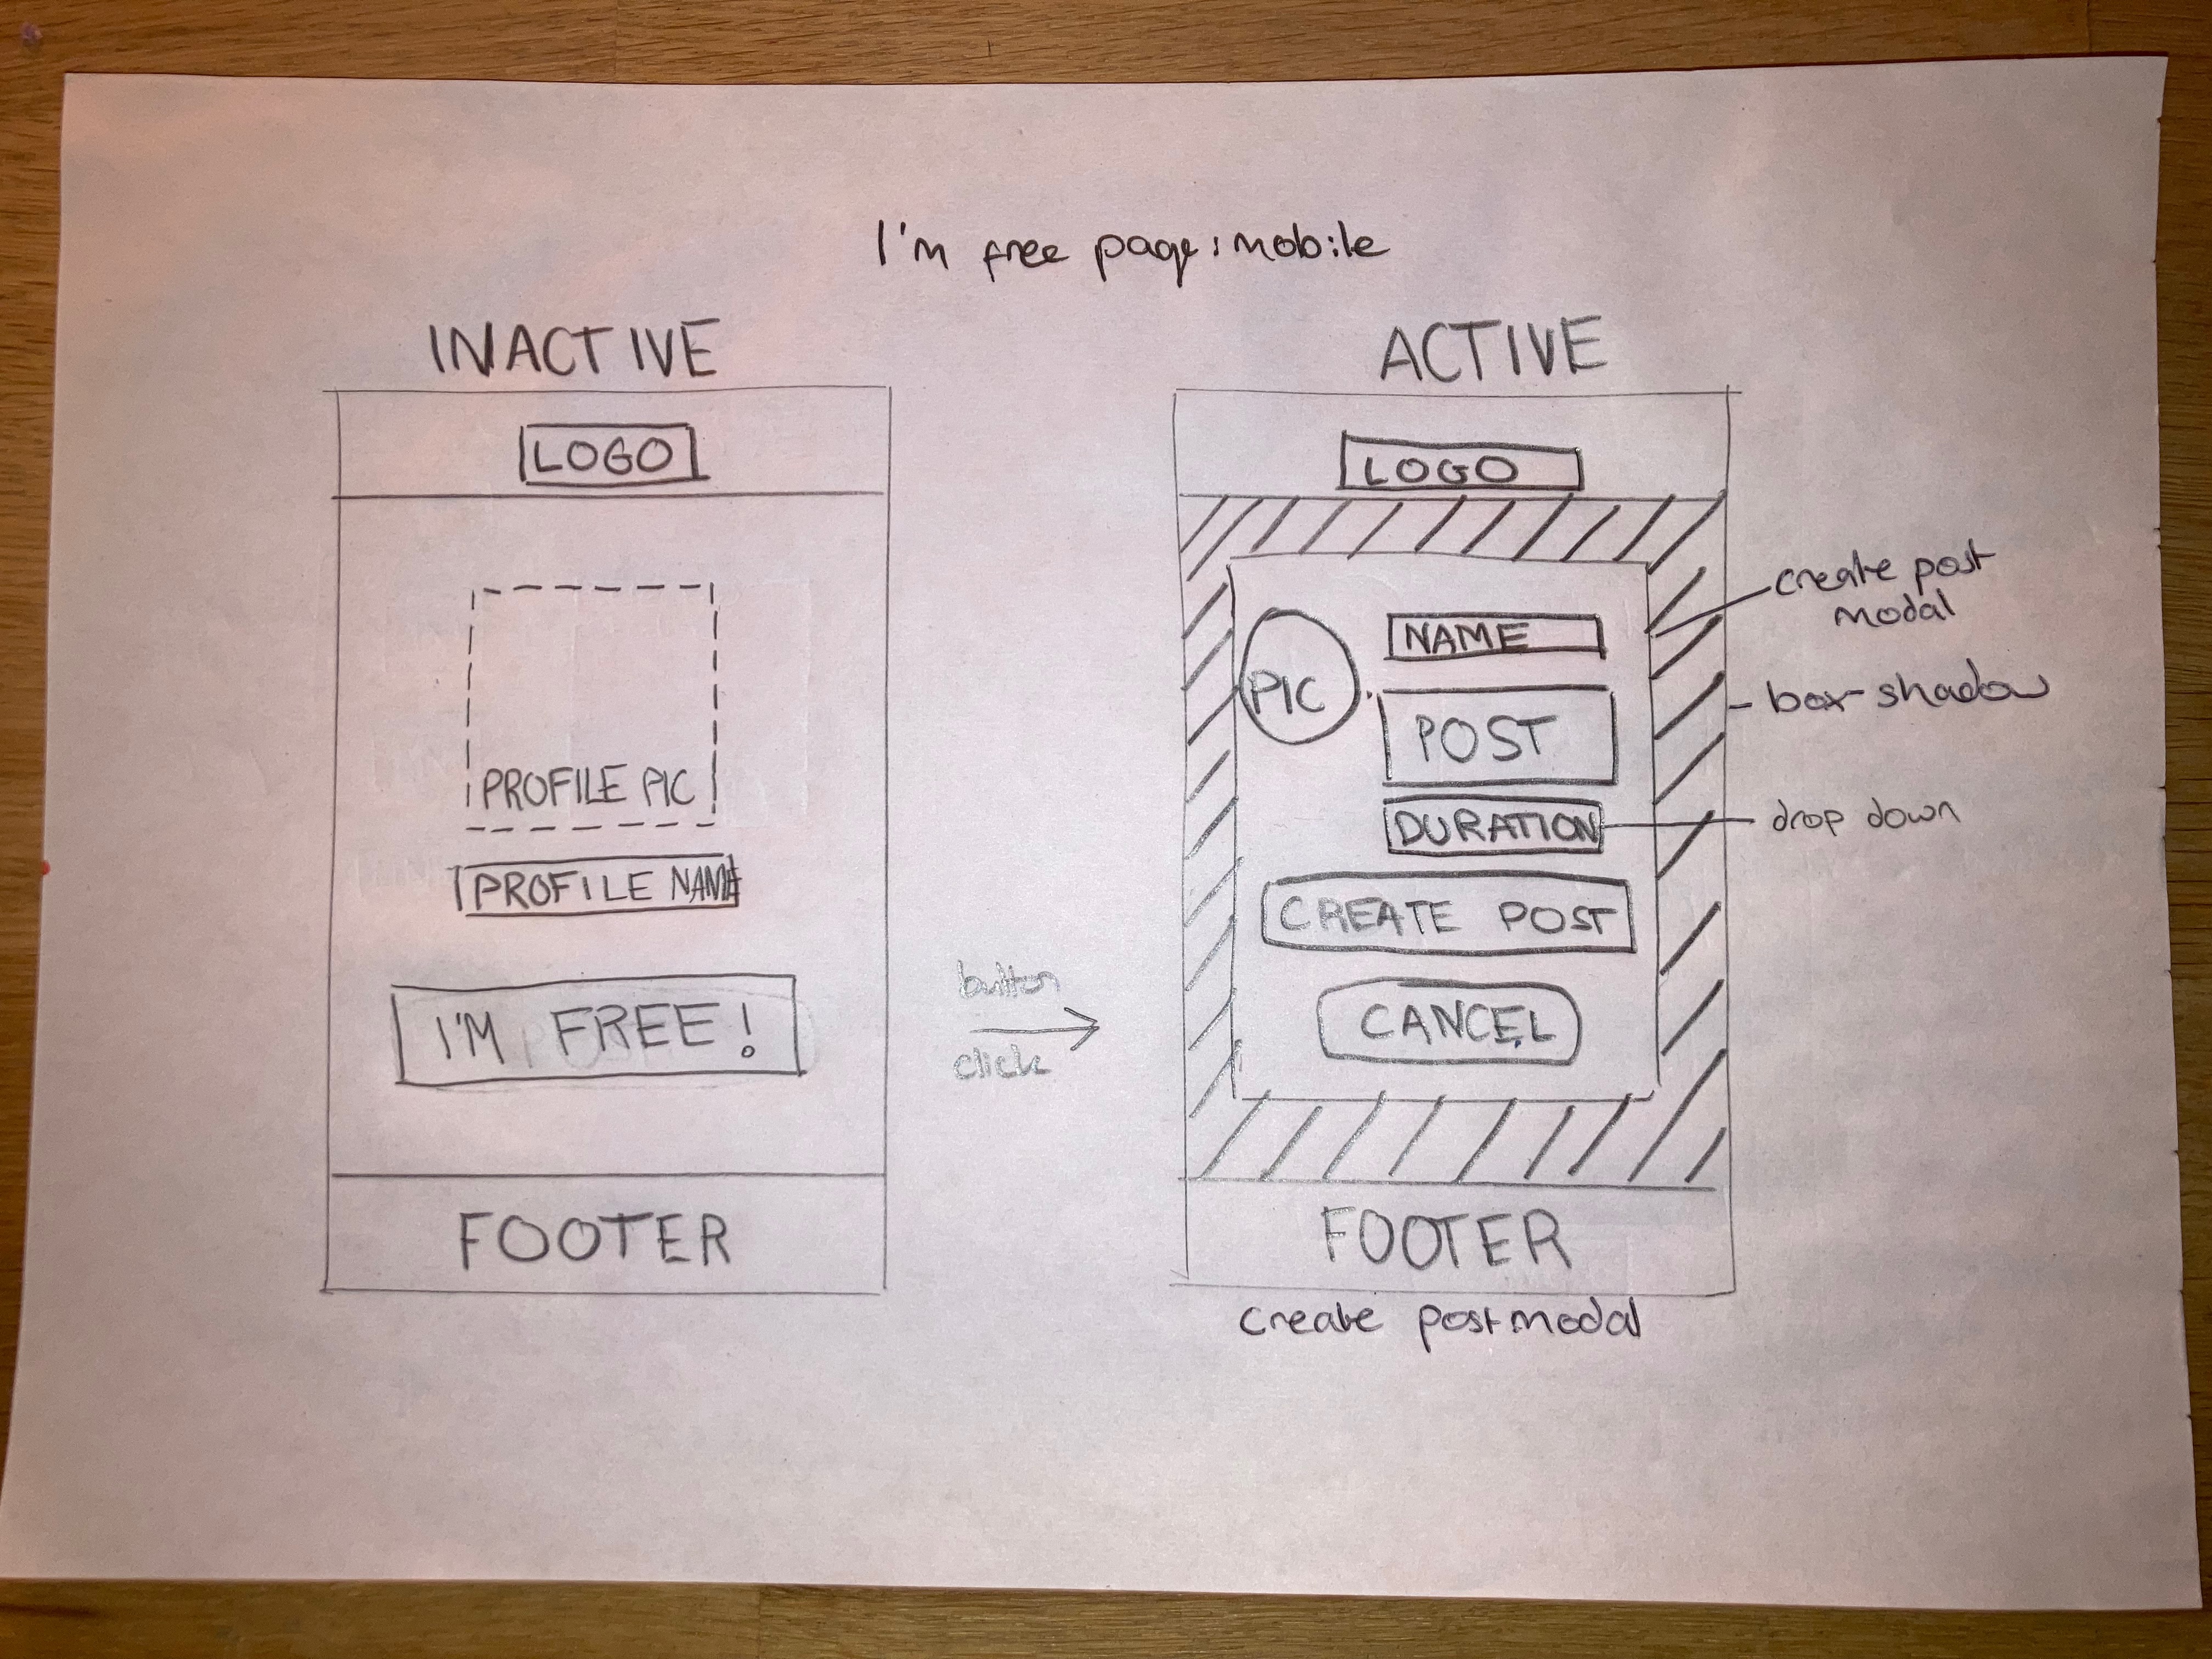 I'm free page: mobile
INACTIVE
LOGO
PROFILE PIC
PROFILE NAME
I'M FREE!
FOOTER
button
click
ACTIVE
LOGO
NAME
PIC
POST
DURATION
CREATE POST
CANCEL
FOOTER
create post modal
create post
modal
box-shadow
drop down